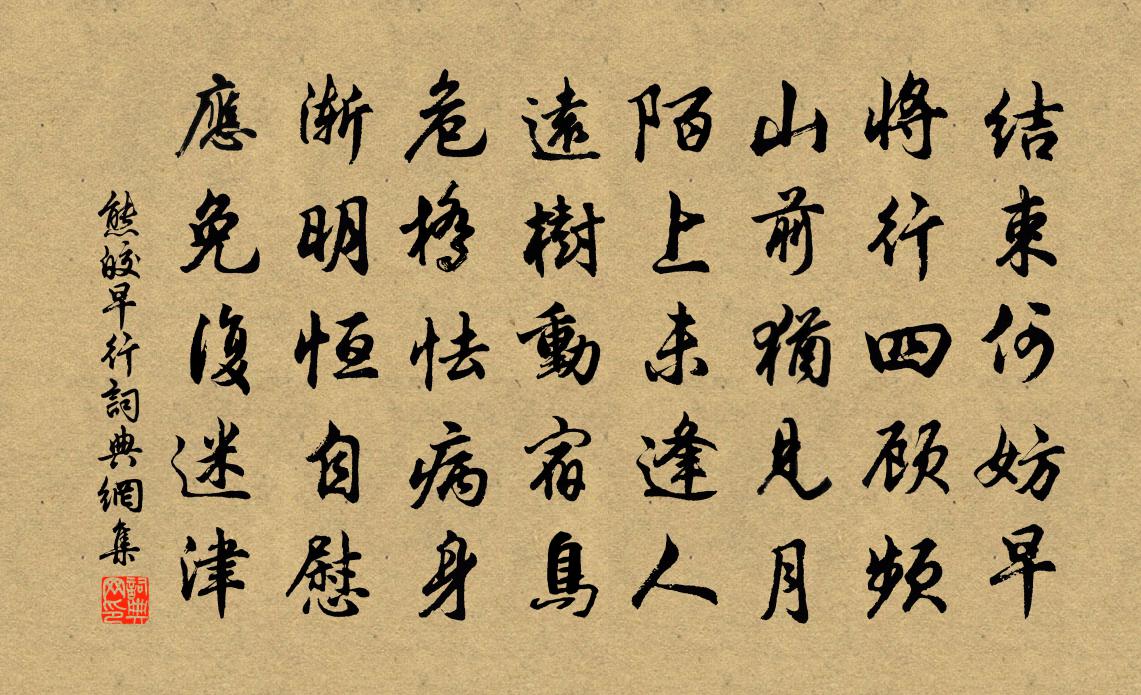 結束何妨早
將行四顧頻
山前猶見月
陌上未逢人
遠樹動宿鳥
危橋怯病身
漸明恒自慰
應免復迷津
熊皎早行詞典網集
詞典網印